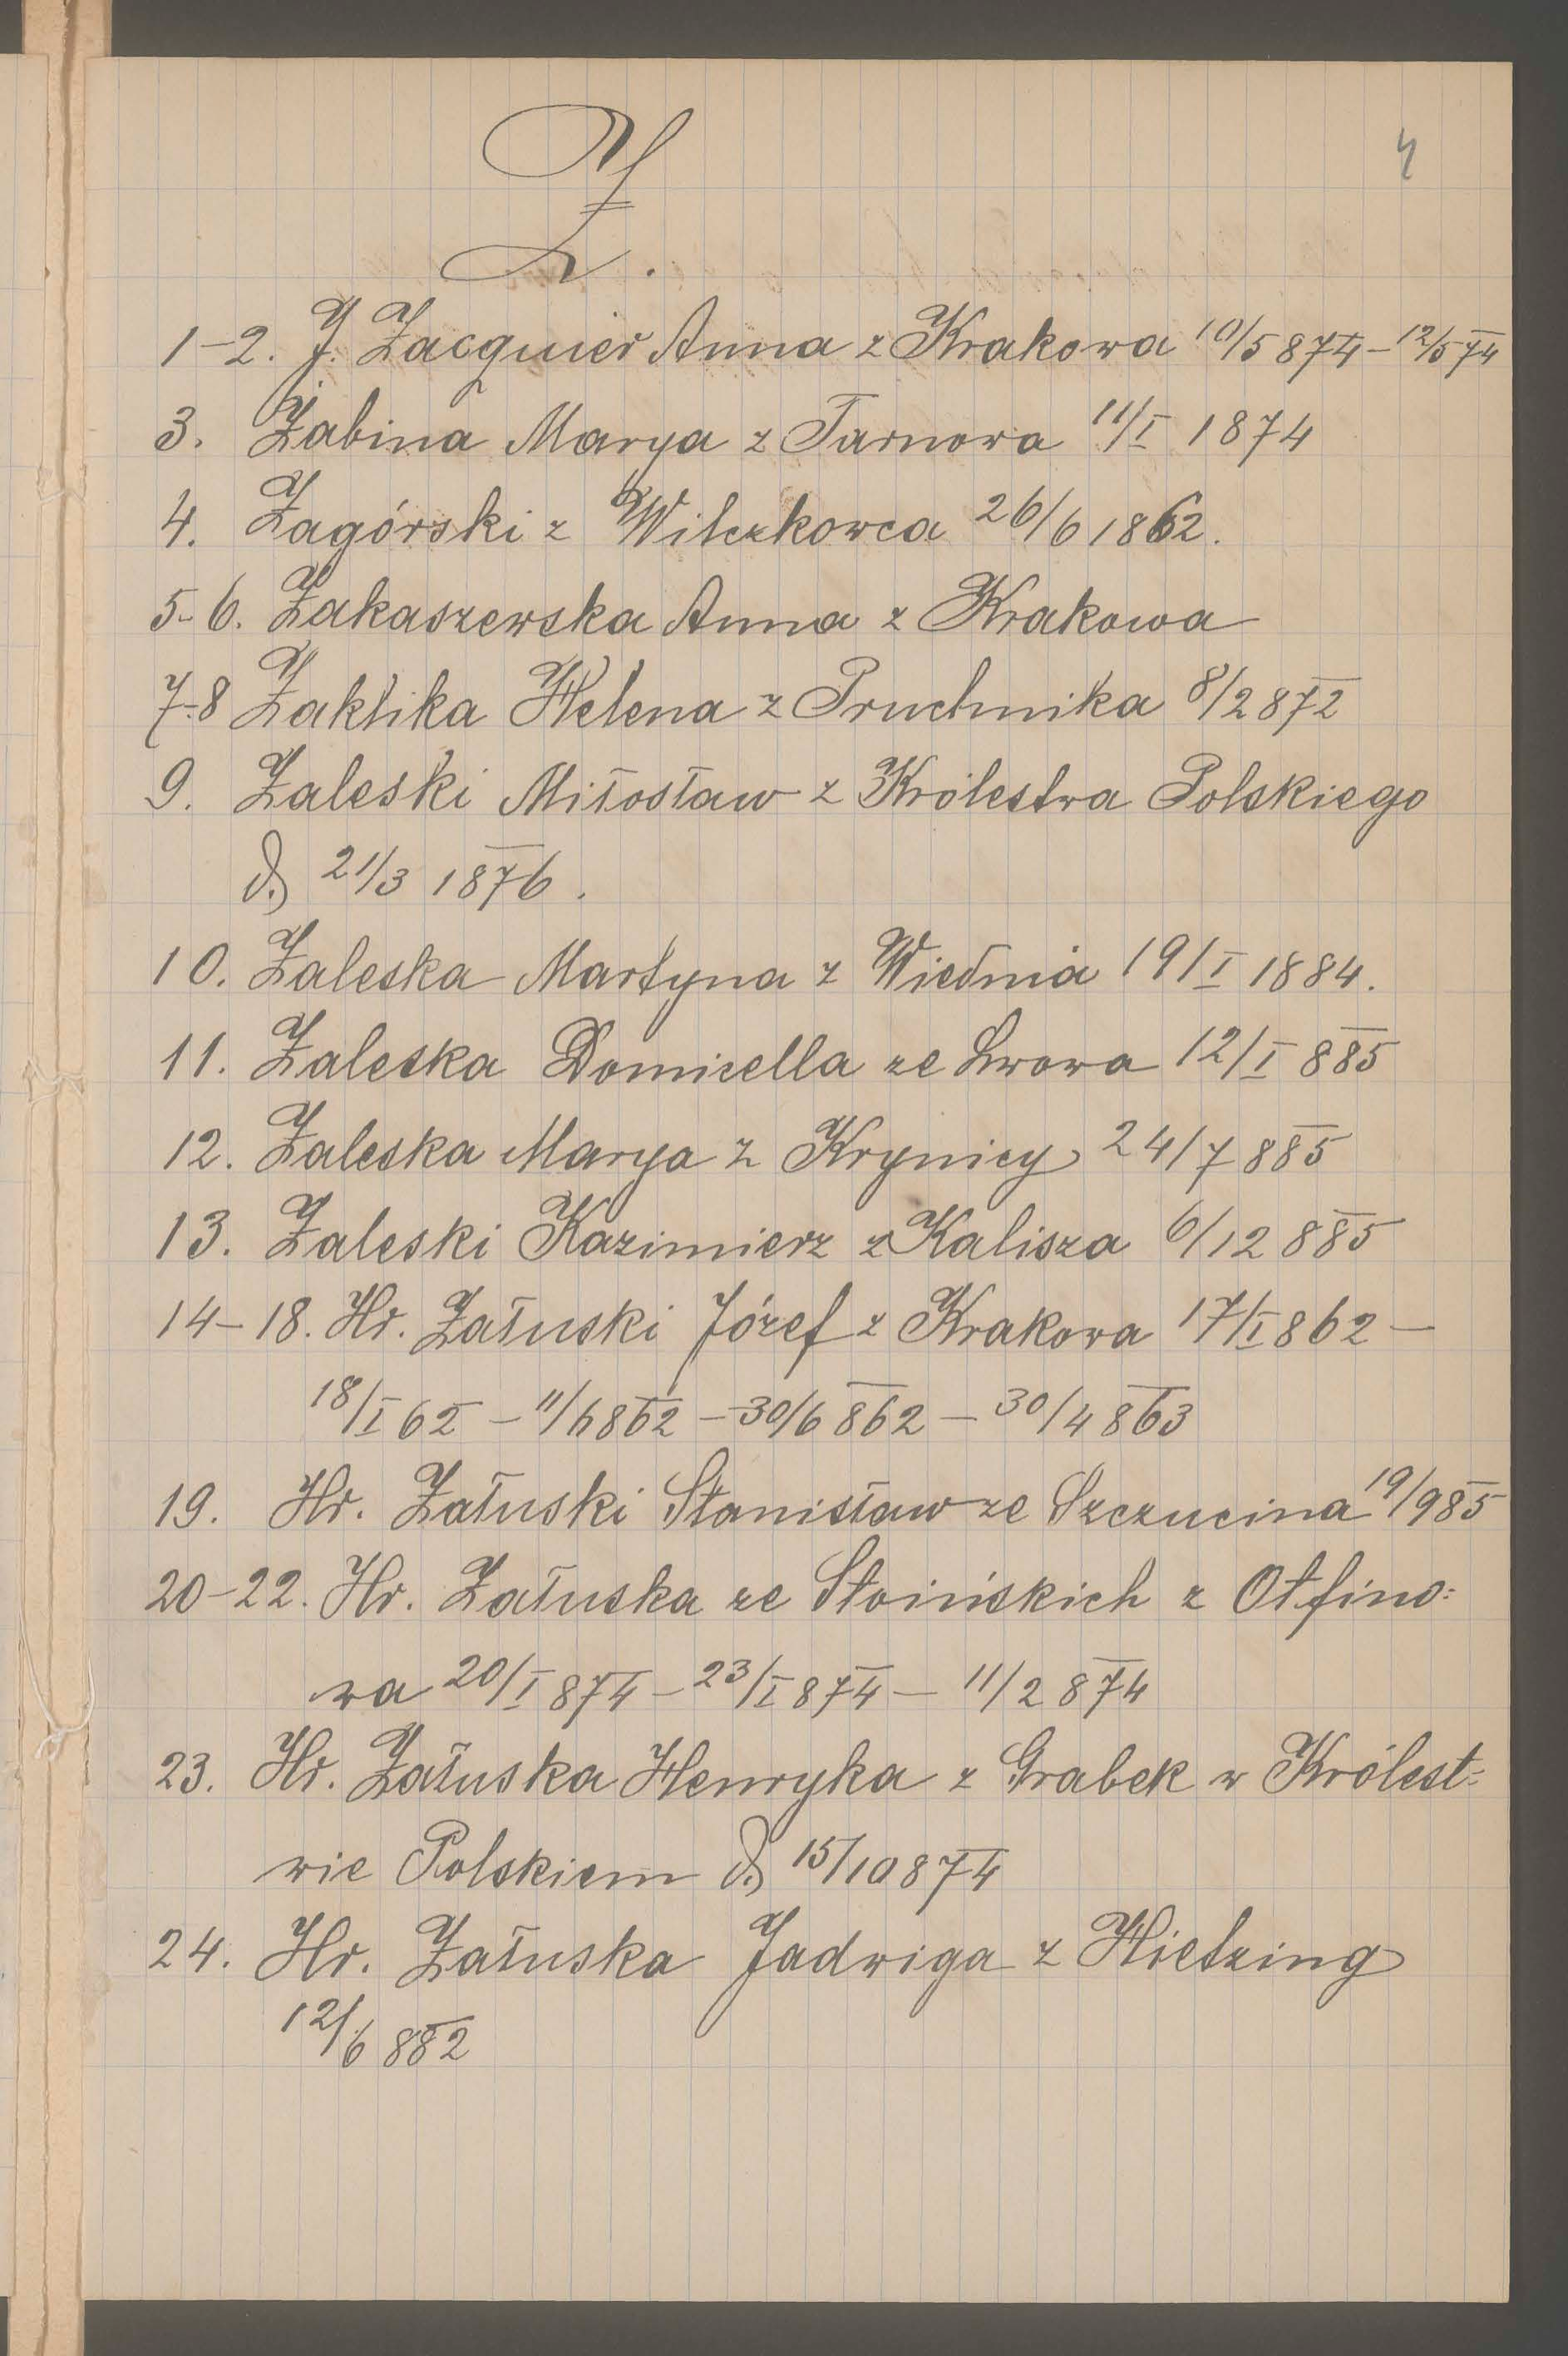 4
Z.
1-2. J. Zacquier Anna z Krakowa 10/5 874 - 12/5 74
3. Żabina Marya z Tarnowa 11/I 1874
4. Zagórski z Wilczkowca 26/6 1862.
5-6. Zakaszewska Anna z Krakowa
7-8 Zaklika Helena z Pruchnika 8/2 872
9. Zaleski Miłosław z Królestwa Polskiego
d. 21/3 1876.
10. Zaleska Martyna z Wiednia 19/I 1884.
11. Zaleska Domicella ze Lwowa 12/I 885
12. Zaleska Marya z Krynicy 24/7 885
13. Zaleski Kazimierz z Kalisza 6/12 885
14-18. Hr. Załuski Józef z Krakowa 17/I 862 -
18/I 62 - 11/6 862 - 30/6 862 - 30/4 863
19. Hr. Załuski Stanisław ze Szczucina 19/9 85
20-22. Hr. Załuska ze Stoińskich z Otfino=
wa 20/I 874 - 23/I 874 - 11/2 874
23. Hr. Załuska Henryka z Grabek w Królest=
wie Polskiem d. 15/10 874
24. Hr. Załuska Jadwiga z Hietzing
12/6 882